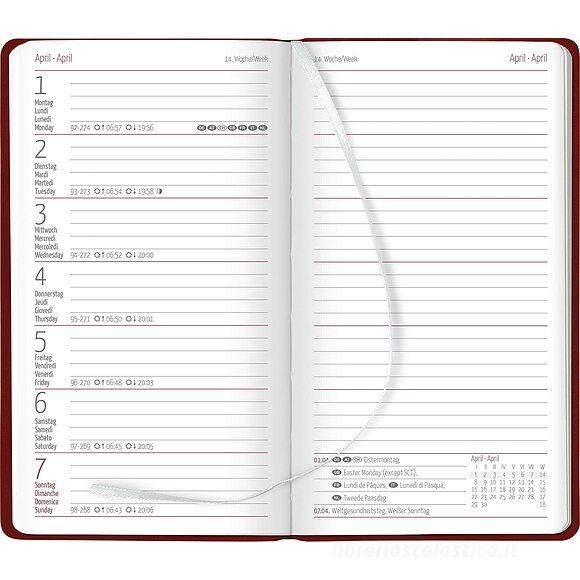 April · April
14. Woche/Week
1
Montag
Lundi
Lunedì
Monday 92-274 06:57 19:56 DE AT CH GB FR IT NL
2
Dienstag
Mardi
Martedì
Tuesday 93-273 06:54 19:58
3
Mittwoch
Mercredi
Mercoledì
Wednesday 94-272 06:52 20:00
4
Donnerstag
Jeudi
Giovedì
Thursday 95-271 06:50 20:01
5
Freitag
Vendredi
Venerdì
Friday 96-270 06:48 20:03
6
Samstag
Samedi
Sabato
Saturday 97-269 06:45 20:05
7
Sonntag
Dimanche
Domenica
Sunday 98-268 06:43 20:06
14. Woche/Week
April · April
01.04. DE AT CH Ostermontag,
GB Easter Monday (except SCT),
FR Lundi de Pâques, IT Lunedì di Pasqua,
NL Tweede Paasdag
07.04. Weltgesundheitstag, Weißer Sonntag
April · April
I II III IV V VI VII W
1 2 3 4 5 6 7 14
8 9 10 11 12 13 14 15
15 16 17 18 19 20 21 16
22 23 24 25 26 27 28 17
29 30 18
libreriascolastica.it